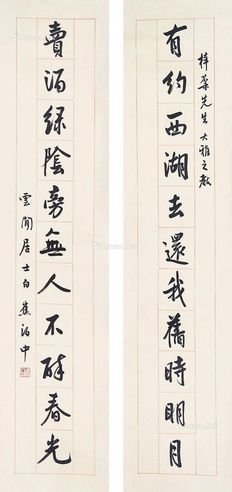 梓先生大雅之教
有約西湖去還我舊時明月
賣酒綠陰旁無人不醉春光
雲間居士白蕉酒中